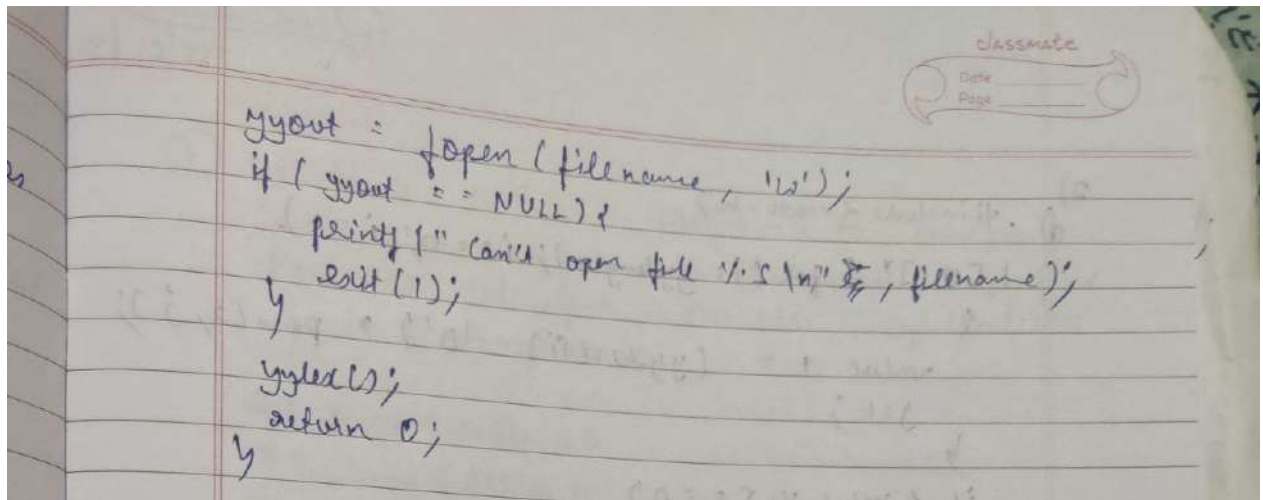 classmate
Date
Page
yyout = fopen (filename, 'w');
if (yyout == NULL) {
printf (" Can't open file %s \n", filename);
exit (1);
}
yylex();
return 0;
}